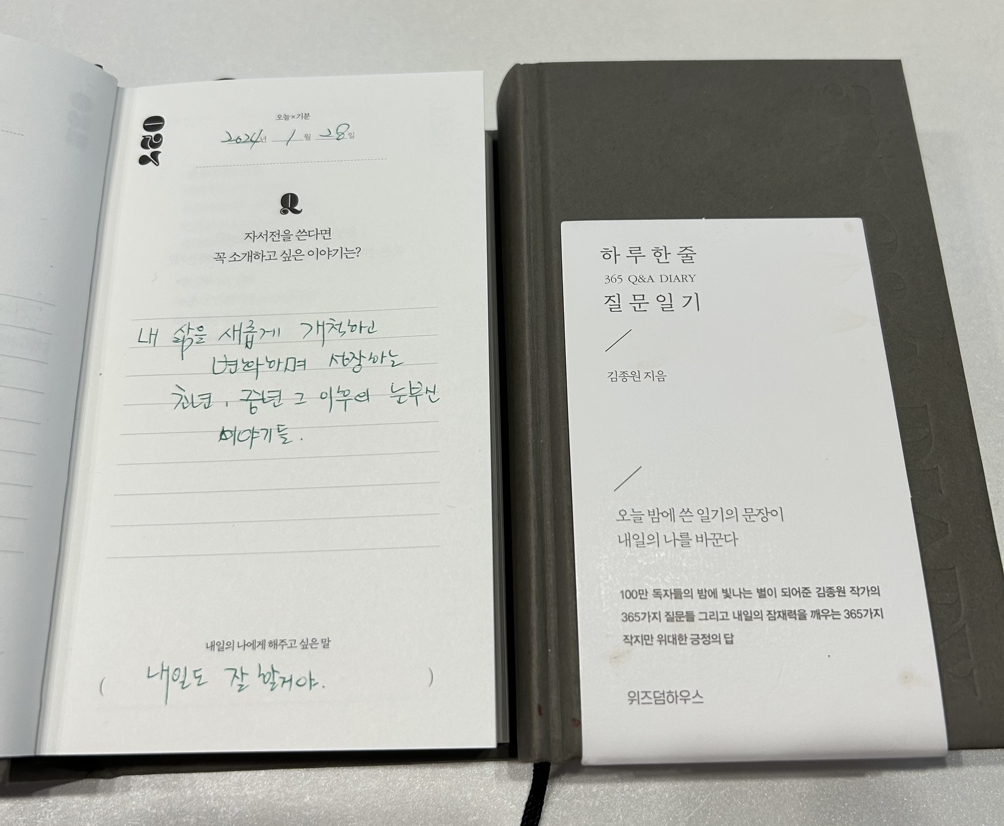 오늘×기분
2024년 1월 28일
Q
자서전을 쓴다면
꼭 소개하고 싶은 이야기는?
내 삶을 새롭게 개척하고
변화하며 성장하는
청년, 중년 그 이후의 눈부신
이야기들.
내일의 나에게 해주고 싶은 말
( 내일도 잘 할거야. )
하루한줄
365 Q&A DIARY
질문일기
김종원 지음
오늘 밤에 쓴 일기의 문장이
내일의 나를 바꾼다
100만 독자들의 밤에 빛나는 별이 되어준 김종원 작가의
365가지 질문들 그리고 내일의 잠재력을 깨우는 365가지
작지만 위대한 긍정의 답
위즈덤하우스